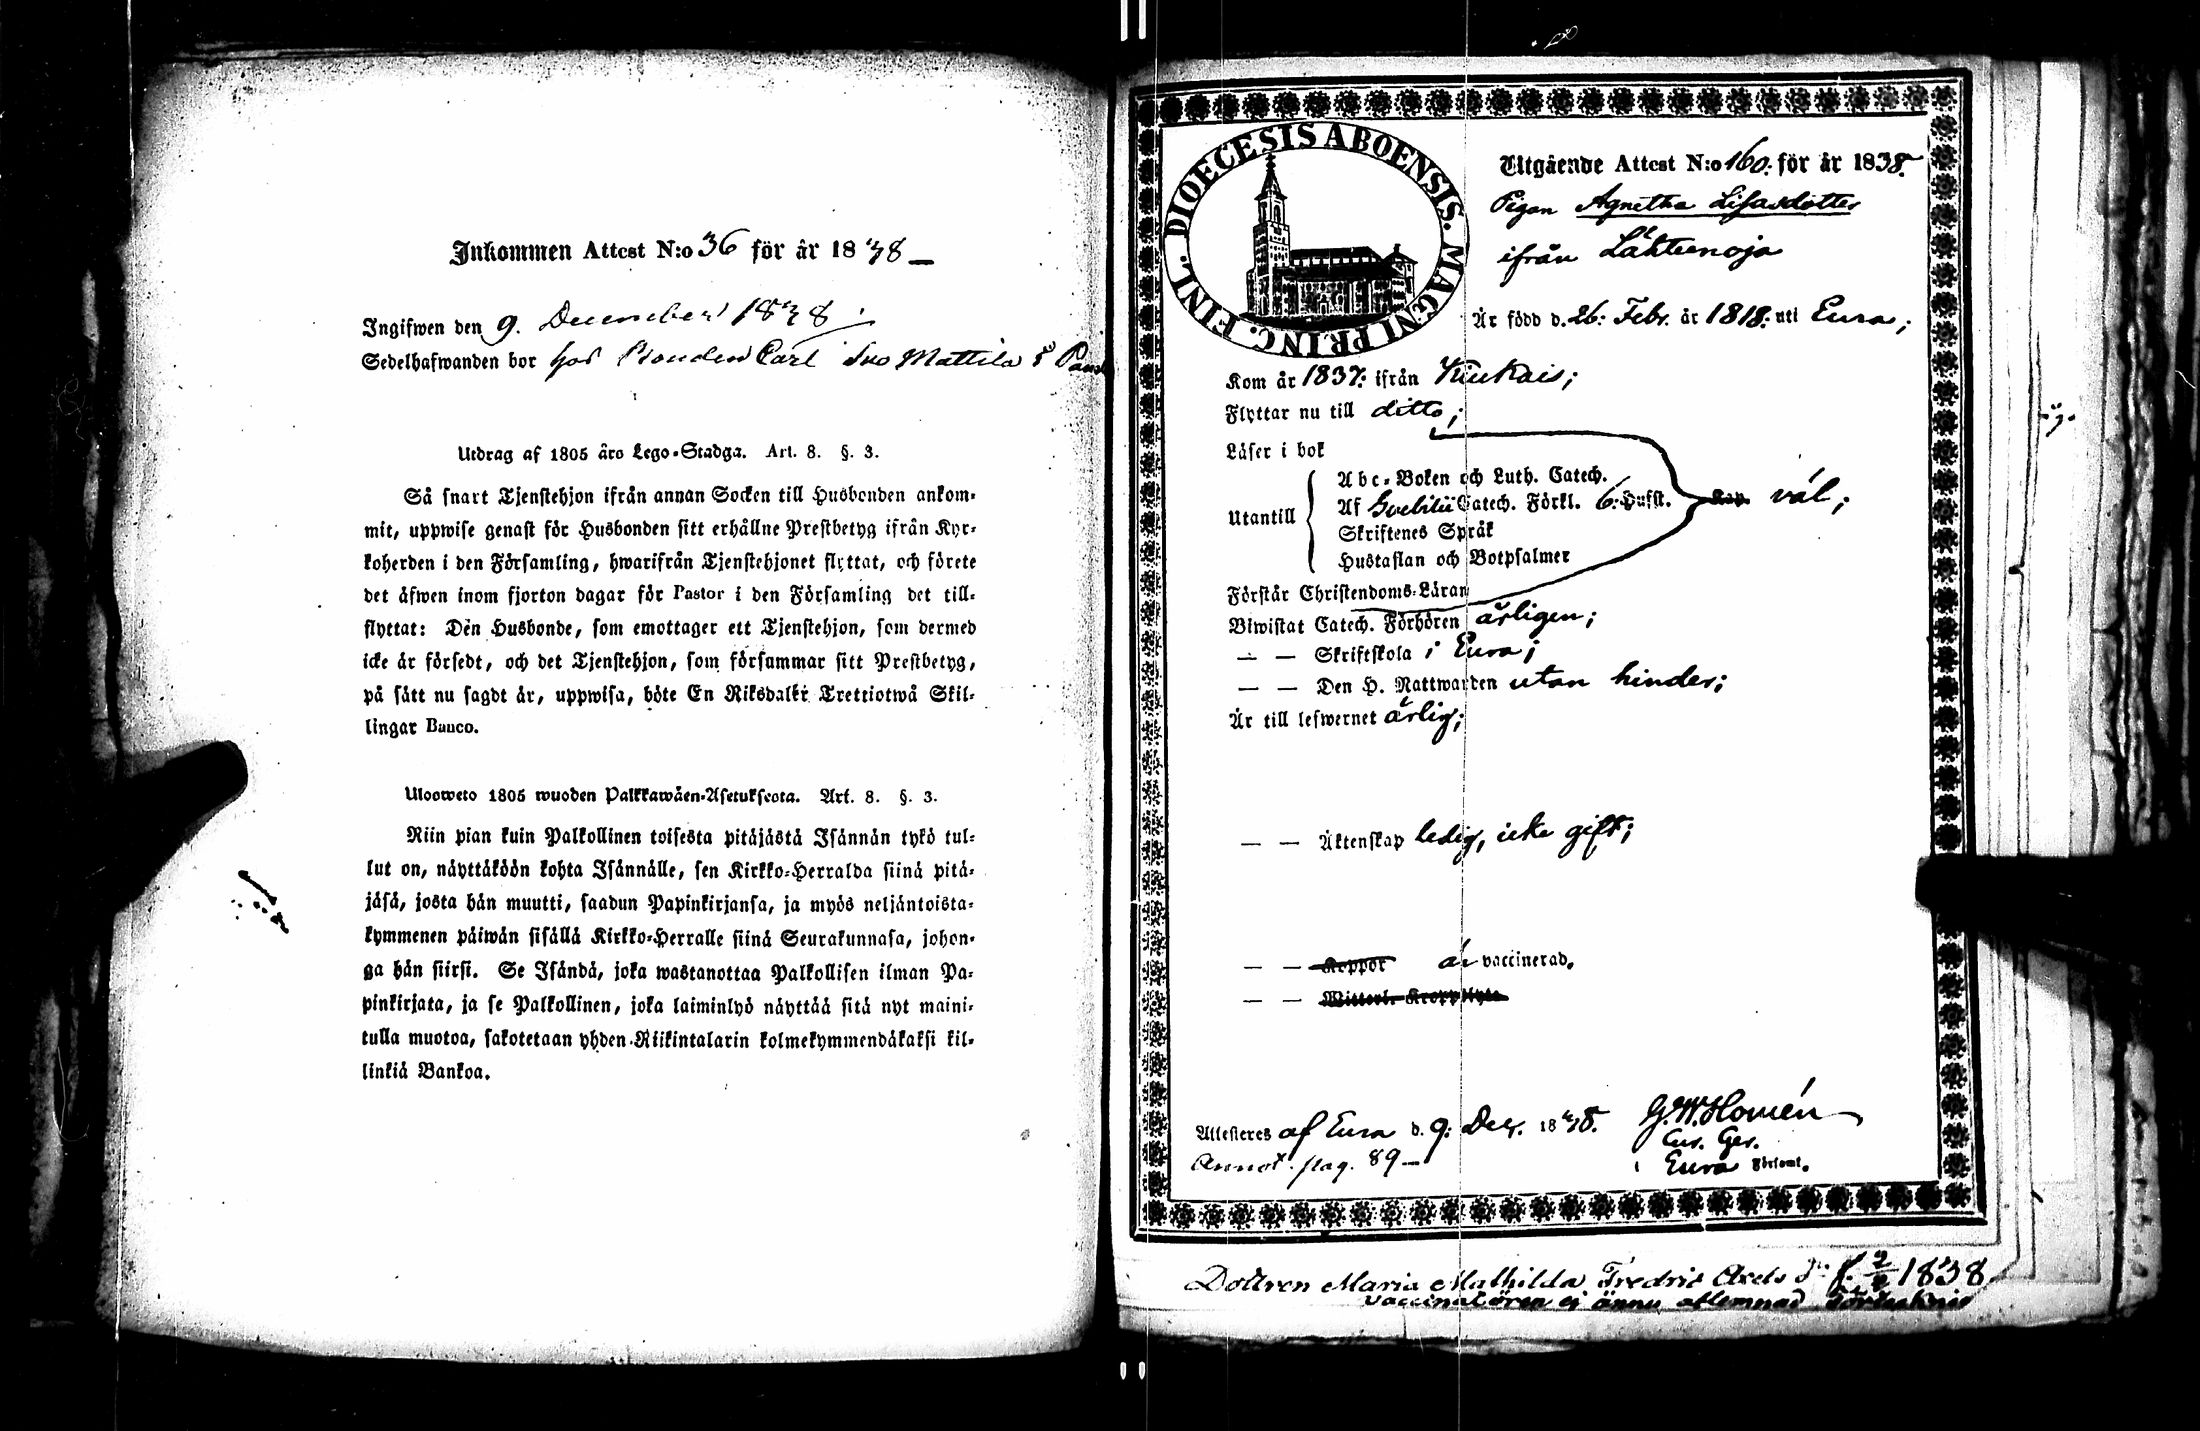 Inkommen Attest N:o 36 för år 1838
Ingifwen den 9. December 1838.
Sedelhafwanden bor hos Bonden Carl Mattila i
Utdrag af 1805 års Lego-Stadga. Art. 8. §. 3.
Så snart Tjenstehjon ifrån annan Socken till Husbonden ankom-
mit, uppwise genast för Husbonden sitt erhållne Prestbetyg ifrån Kyr-
koherden i den Församling, hwarifrån Tjenstehjonet flyttat, och förete
det äfwen inom fjorton dagar för Pastor i den Församling det till-
flyttat: Den Husbonde, som emottager ett Tjenstehjon, som dermed
icke är försedt, och det Tjenstehjon, som försummar sitt Prestbetyg,
på sätt nu sagdt är, uppwisa, böte En Riksdaler Trettiotwå Skil-
lingar Banco.
Ulosweto 1805 wuoden Palkkawäen-Asetuksesta. Art. 8. §. 3.
Niin pian kuin Palkollinen toisesta pitäjästä Isännän tykö tul-
lut on, näyttäköön kohta Isännälle, sen Kirkko-Herralda siinä pitä-
jäsä, josta hän muutti, saadun Papinkirjansa, ja myös neljäntoista-
kymmenen päiwän sisällä Kirkko-Herralle siinä Seurakunnasa, johon-
ga hän siirsi. Se Isändä, joka wastanottaa Palkollisen ilman Pa-
pinkirjata, ja se Palkollinen, joka laiminlyö näyttää sitä nyt maini-
tulla muotoa, sakotetaan yhden Riikintalarin kolmekymmendäkaksi kil-
linkiä Bankoa.
DIOECESIS ABOENSIS. MAGNI PRINC. FINL.
Utgående Attest N:o 160. för år 1838.
Pigan Agnetha Lisasdotter
ifrån Lähteenoja
Är född d. 26. Febr. år 1818. uti Eura;
Kom år 1837. ifrån Kiukais;
Flyttar nu till ditto;
Läser i bok
Utantill
Abc-Boken och Luth. Catech.
Af Svebilii Catech. Förkl. 6. Hufst. väl;
Skriftenes Språk
Hustaflan och Botpsalmer
Förstår Christendoms-Läran
Biwistat Catech. Förhören årligen;
— — Skriftskola i Eura;
— — Den H. Nattwarden utan hinder;
Är till lefwernet ärlig;
— — Äktenskap ledig, icke gift;
— — Koppor är vaccinerad.
— — Witterl. Kropplyte
Attesteras af Eura d. 9. Dec. 1838. G.W. Homén
Annot. pag. 89
i Eura Församl.
Dottren Maria Mathilda Fredrio Axels f. 1838
vaccinatören ej ännu aflemnad Förtekning